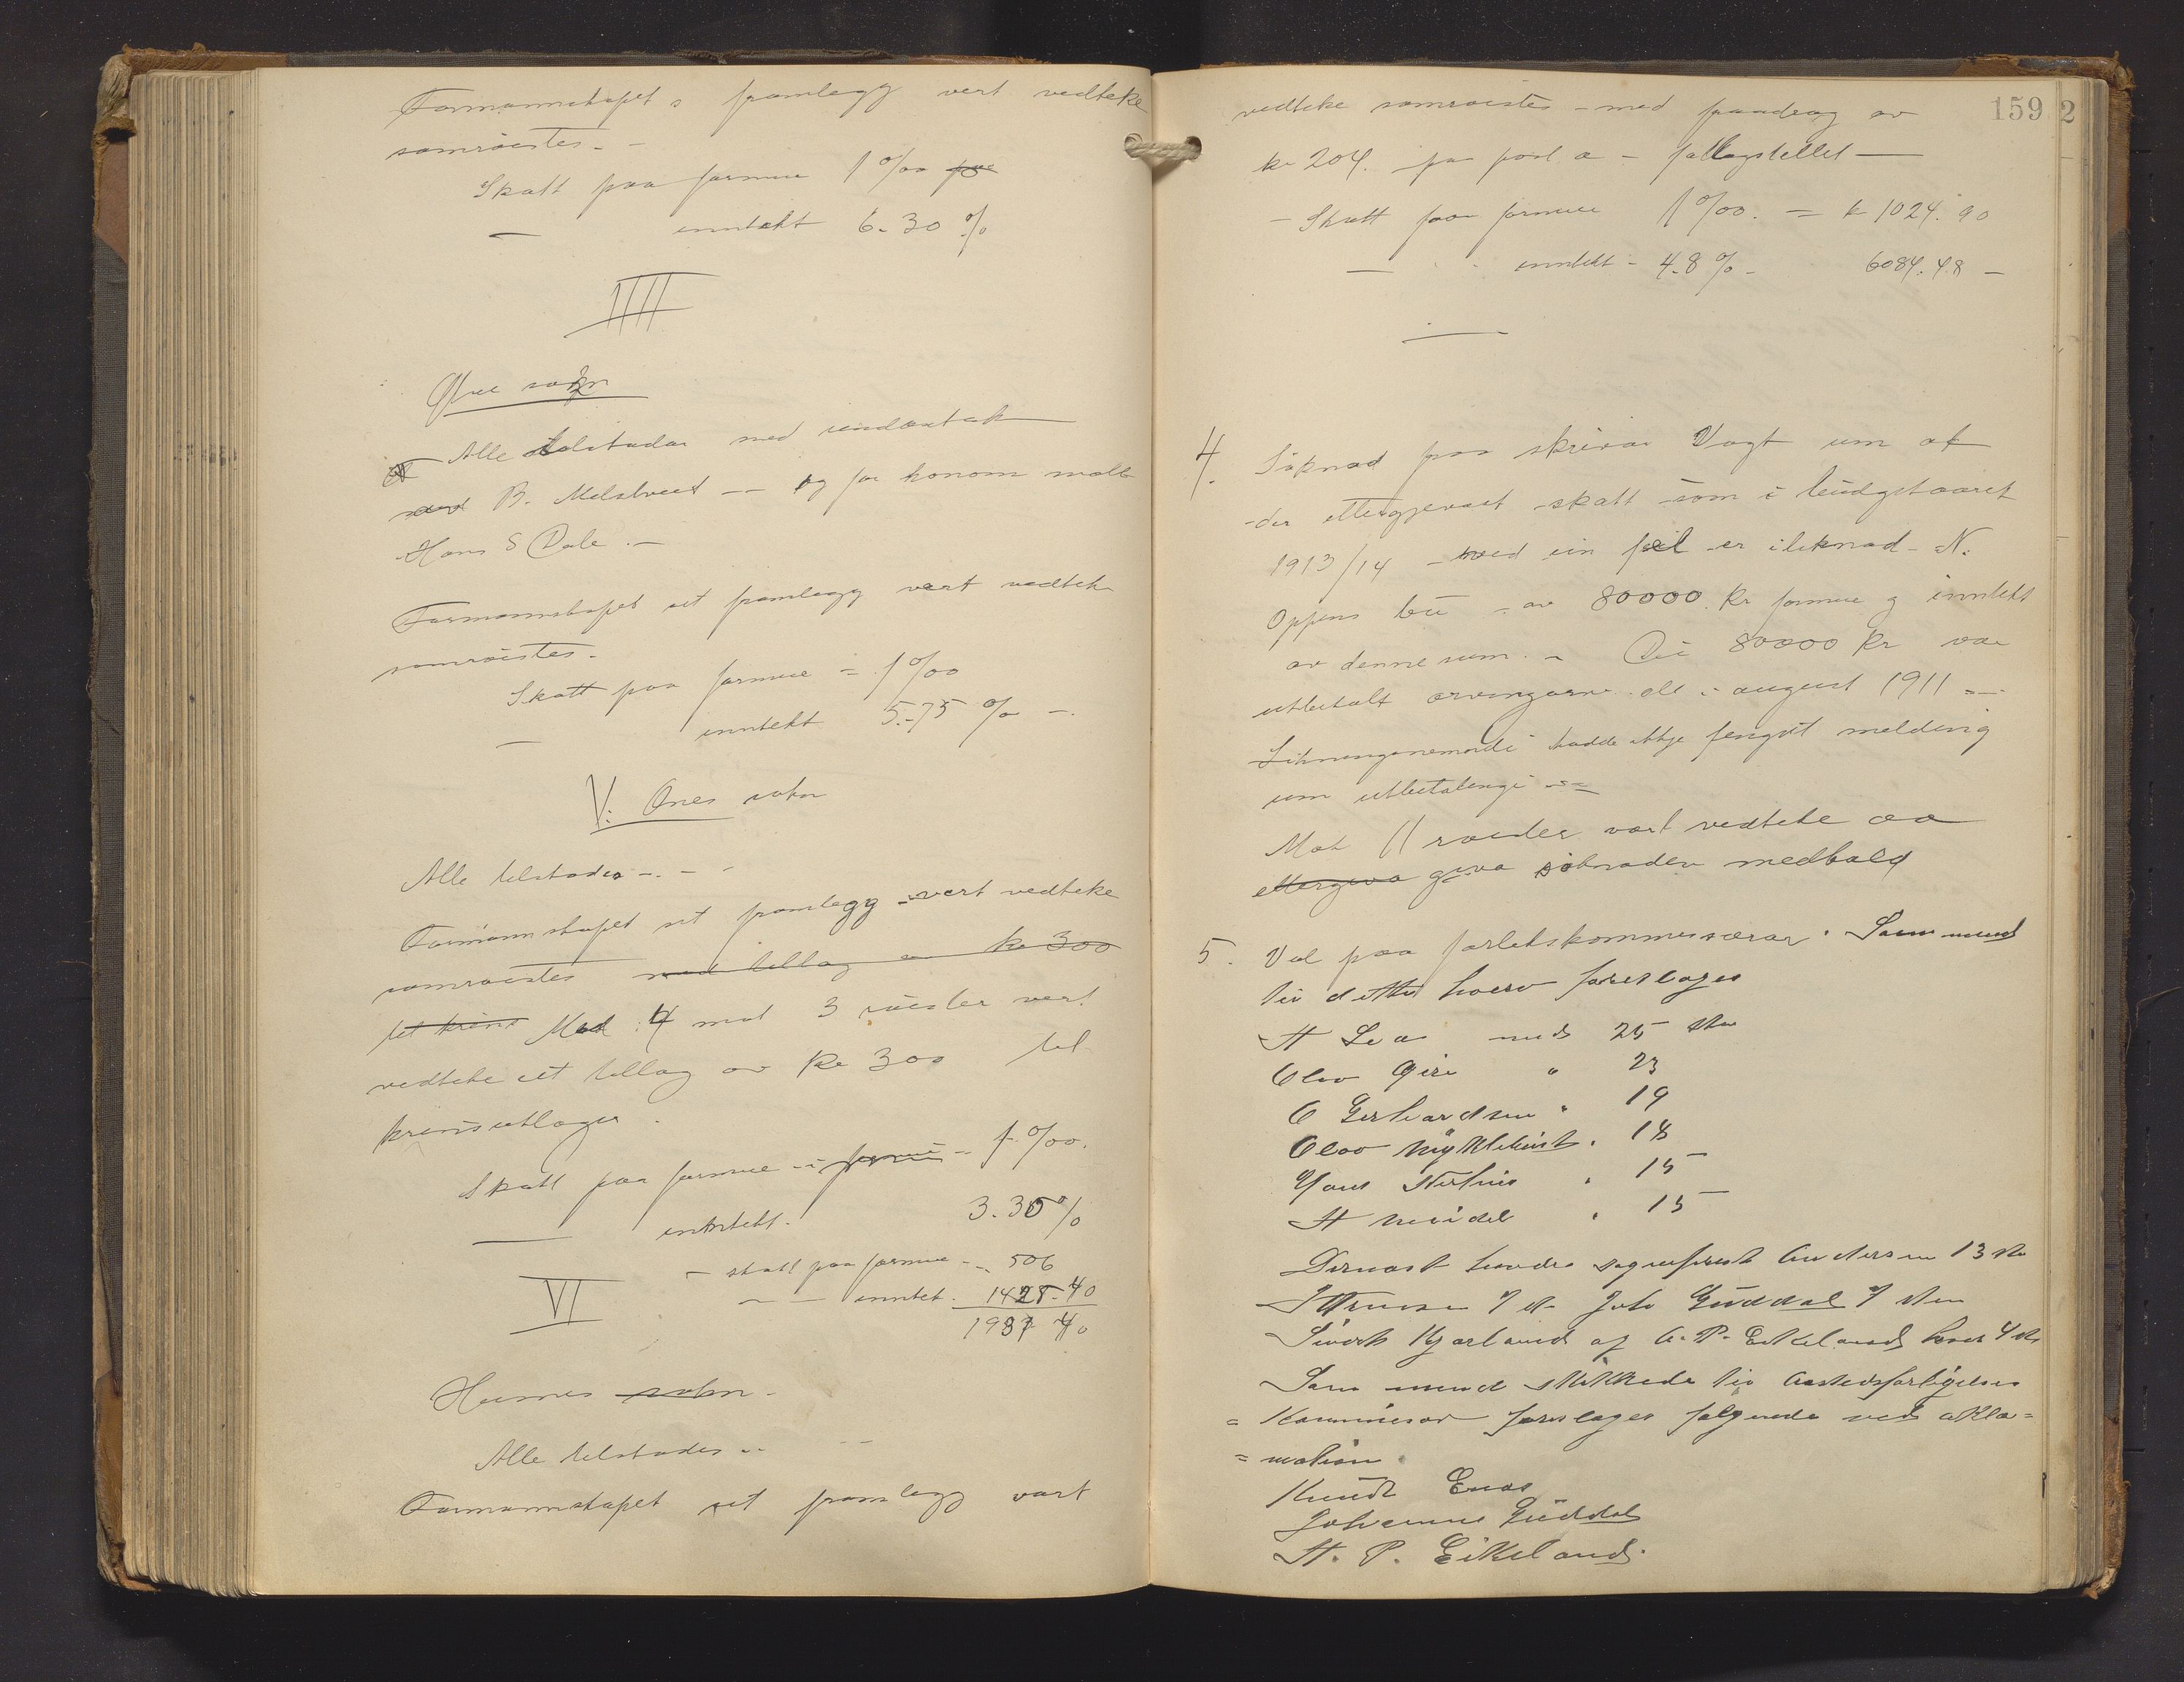 Formannskapet s framlegg vert vedteke
samröistes. -
Skatt paa formue 1 %00 paa
— inntekt 6.30 %
IIII
Ølve sokn
Alle tilstades med undantak
B. Melstveit -- og for honom møtte
Hans S Dale. -
Formannskapet sit framlegg vert vedteke
samröistes. -
Skatt paa formue = 1 %00
— inntekt 5.75 % -.
V. Ænes sokn
Alle tilstades -. - -
Formannskapet sit framlegg - vert vedteke
samröistes med tillag av kr 300
til krins Med 4 mot 3 röister vert
vedteke eit tillag av kr 300 til
krinsutlogur.
Skatt paa formue - i formue - 1 %00.
— inntekt. 3.30 %
- skatt paa formue - - 506
VI - - inntekt. 1425.40
1931 40
Husnes sokn -
Alle tilstades --
Formannskapet sit framlegg vart
159 2
vedteke samröistes - med fraadrag av
kr 204. paa post a - fatlagstellet —
- Skatt paa formue 1 %00. = kr 1024.90
— inntekt - 4.8 % - 6084.48 -
4. Söknad fraa skrivar Vogt um at
der ettergjevast skatt som i budgetaaret
1913/14 ved ein feil er iliknad N.
Oppens bu - av 80000 kr formue og inntekt
av denne sum. - Dei 80000 kr var
utbetalt arvingarne alt i august 1911 --
Likningsnemndi hadde ikkje fenget melding
um utbetalingi -=
Mot 11 röister vart vedteke aa
ettergeva geva söknaden medhald
5. Val paa forlikskommissærar. Som mend
til dette hverv foreslages
H Lea med 25 st
Olav Gjere " 23
O Gerhardsen " 19
Olav Myklebust " 18
Hans " 15
H Neidel " 15
Dernæst havde sogneprest Andersen 13 st
7 st Joh Guddal 7 sten
Sivert Kjærland og A. P. Eikeland hver 4 st
Som mend skikkede til
= Kommissær foreslages følgende ved akla=
= mation.
Knudt Enes
Johannes Guddal
H. P. Eikeland.